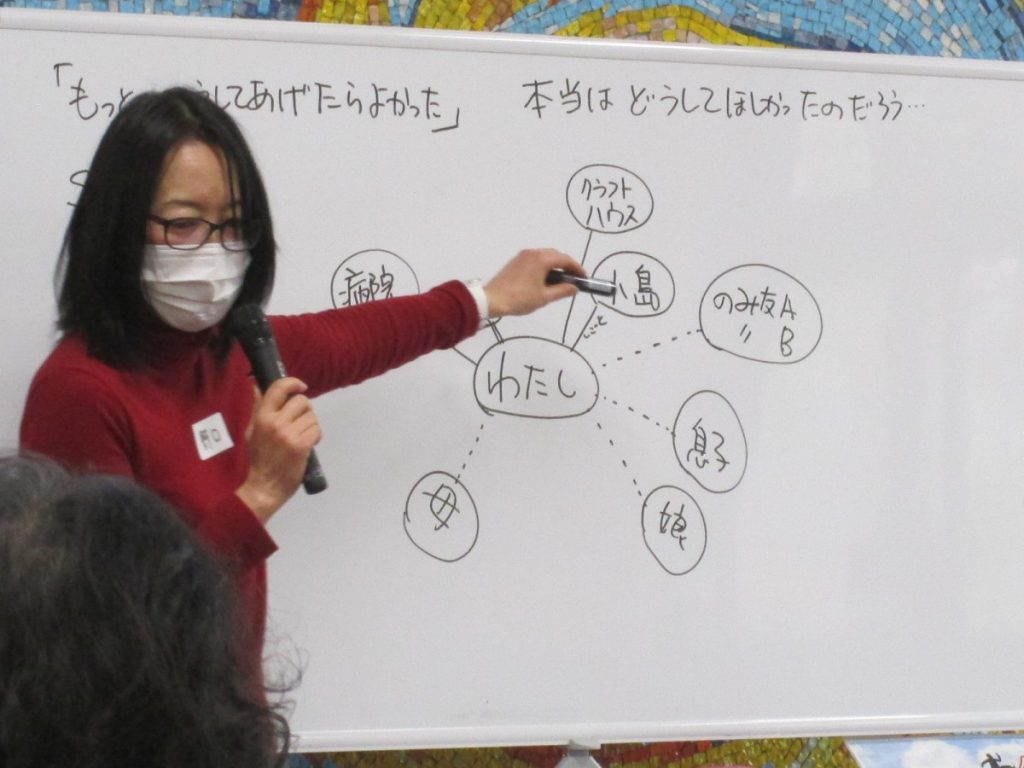 「もっと してあげたらよかった」
本当は どうしてほしかったのだろう…
クラフト
ハウス
病院
小島
のみ友A
〃 B
わたし
息子
母
娘
野口